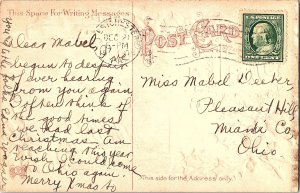 This Space For Writing Messages
POST CARD
DEC 21
PM
ONE CENT
Dear Mabel,
Begun to despair
of ever hearing
from you again.
Often think of
the good times
we had last
Christmas. Am
teaching this year.
Wish I could come
to Ohio again.
Merry Xmas to
Miss Mabel Deeter,
Pleasant Hill
Miami Co.
Ohio
This side for the Address only.